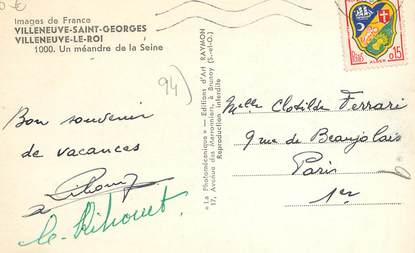 Images de France
VILLENEUVE-SAINT-GEORGES
VILLENEUVE-LE-ROI
1000. Un méandre de la Seine
94)
Bon souvenir
de vacances
« La Photomécanique » — Editions d'Art RAYMON
17, Avenue des Marronniers, à Brunoy (S.-et-O.)
Reproduction interdite
0,15
ALGER
Melle Clotilde Ferrari
9 rue de Beaujolais
Paris
1er